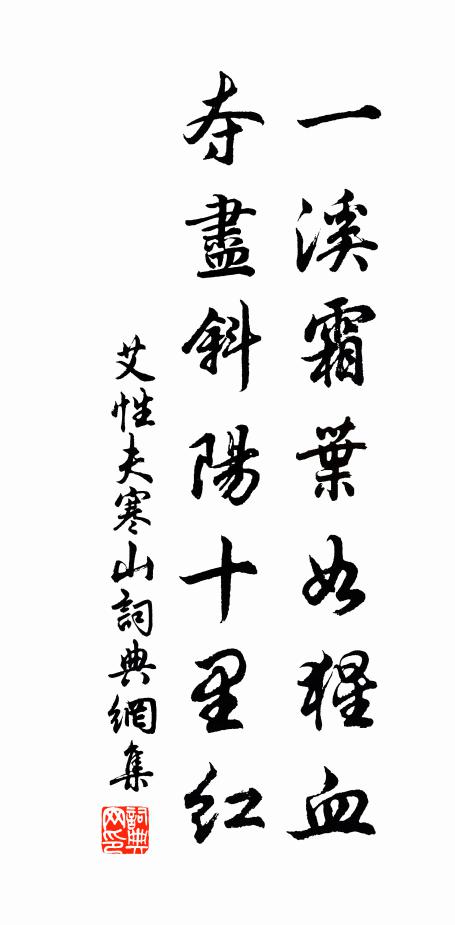 一溪霜葉如猩血
夺盡斜陽十里紅
艾性夫寒山詞典網集
詞典网印